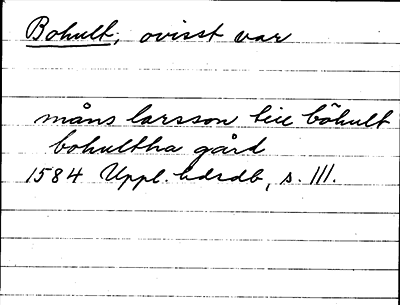 Bohult, ovisst var
måns larsson till bôhult
bohultha gård
1584 Uppl. hdsdb, s. 111.